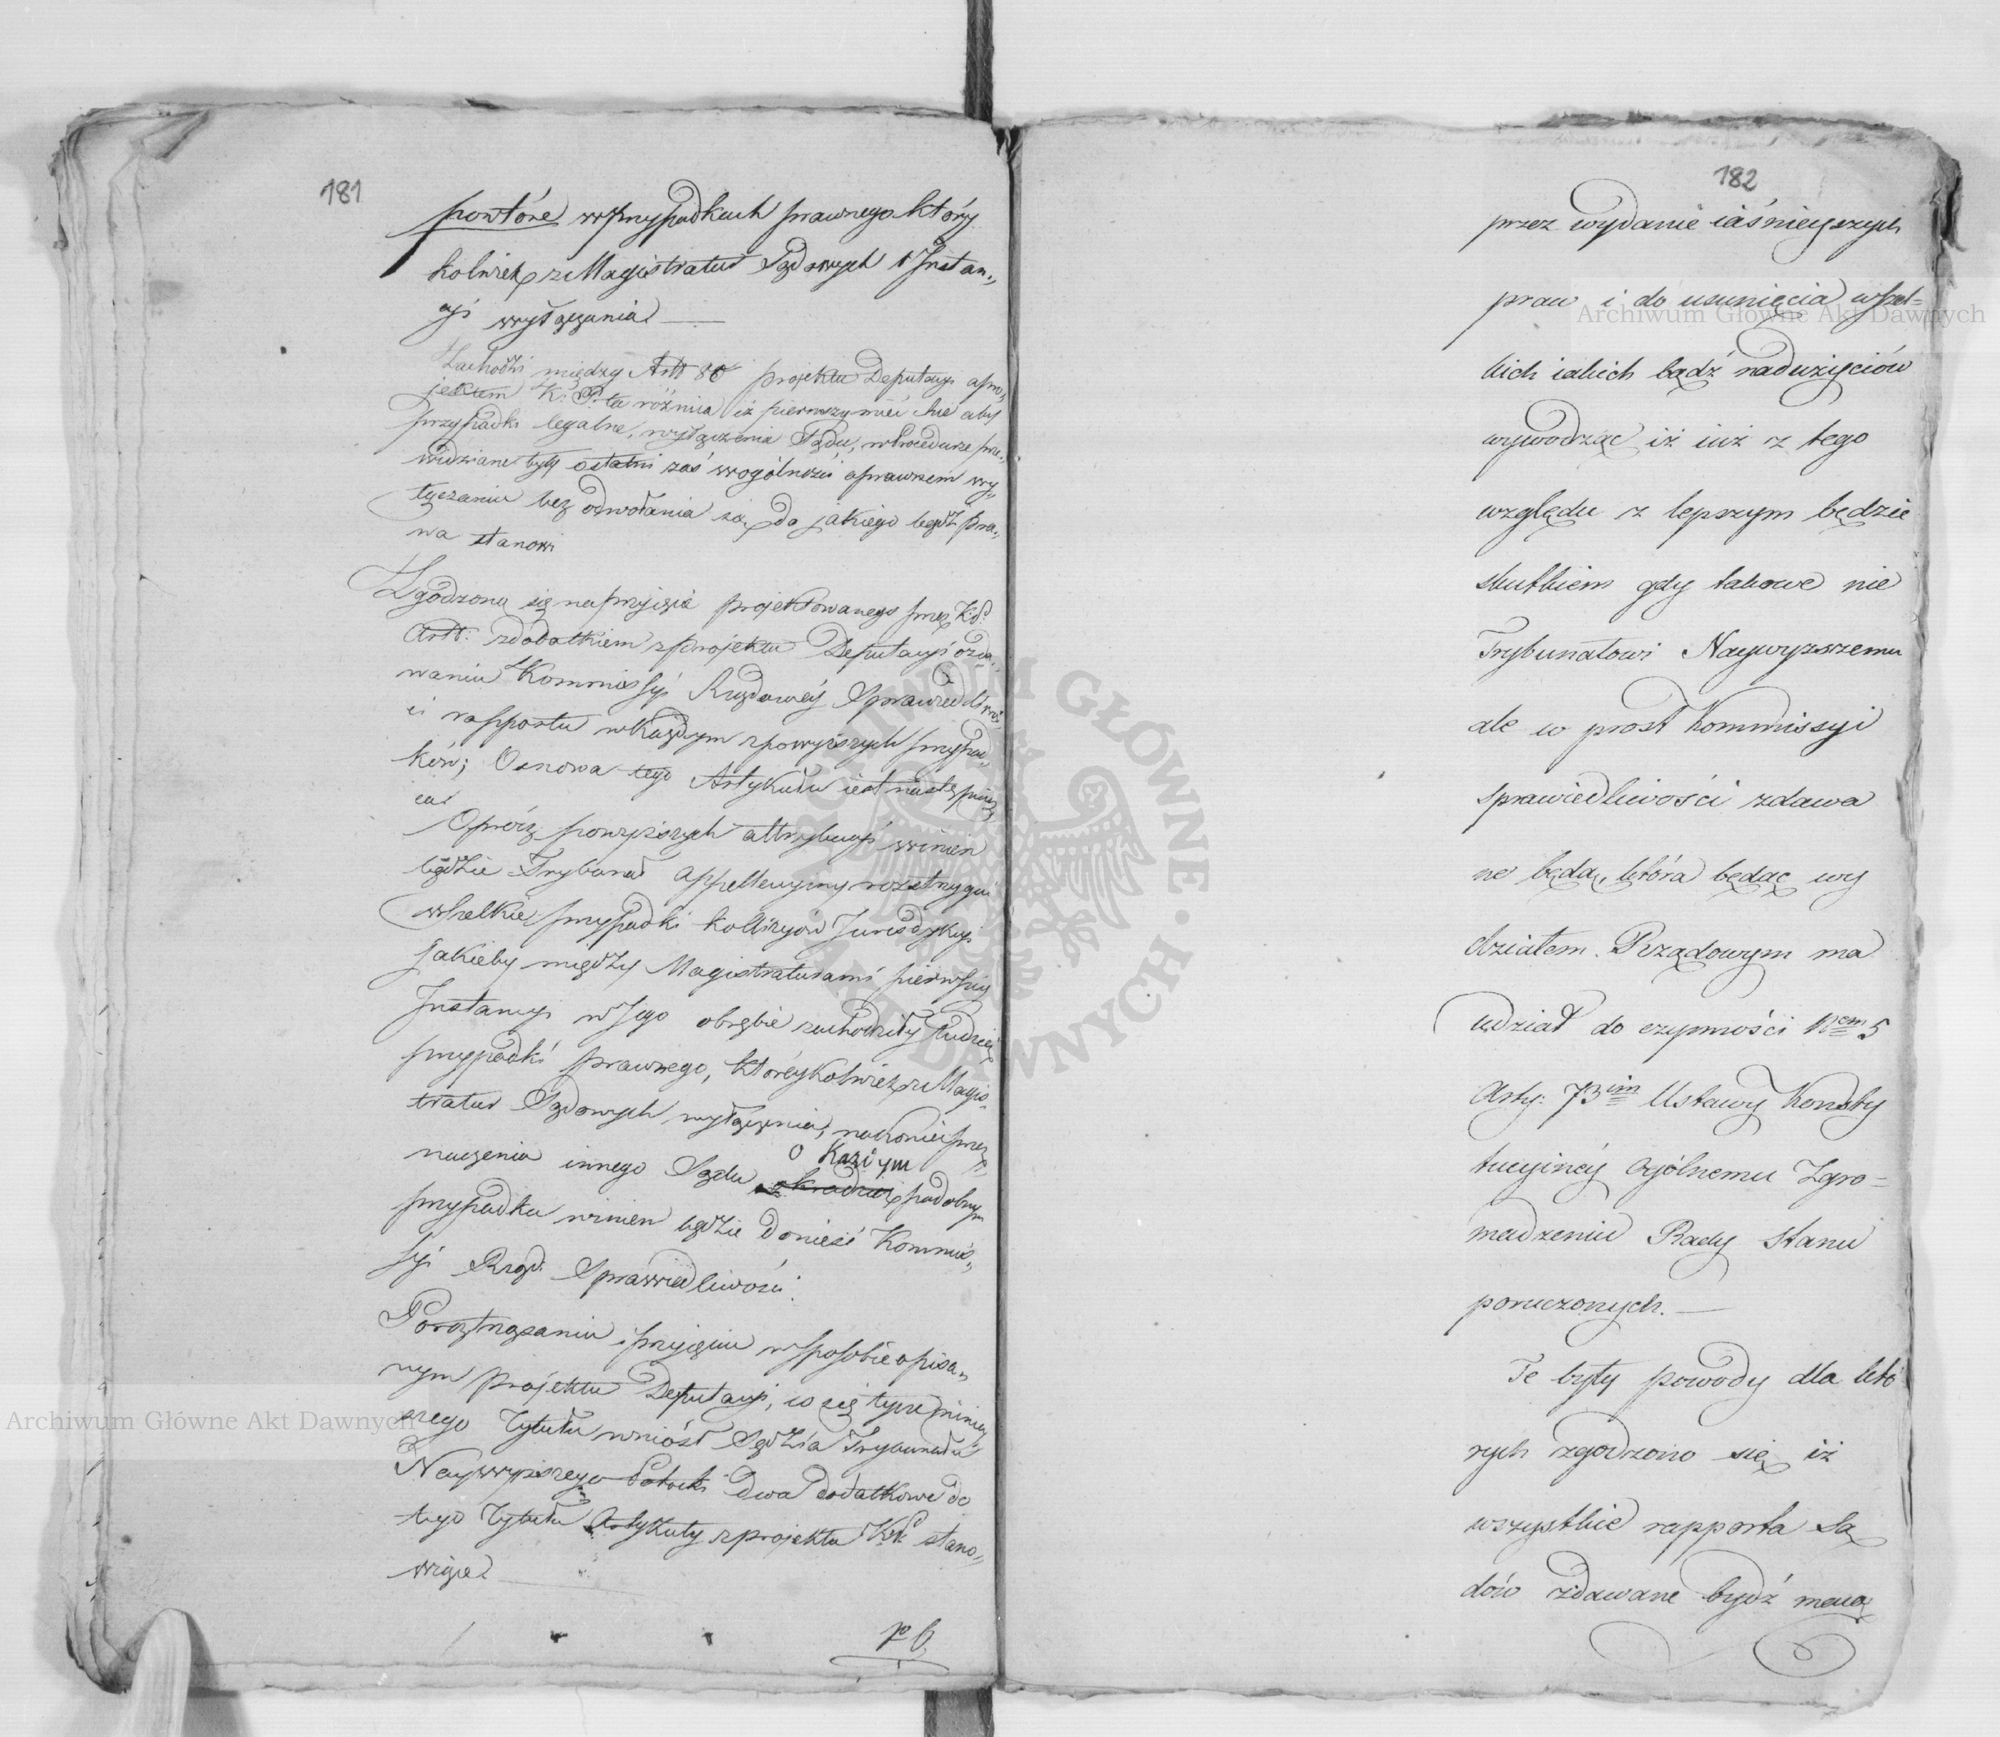 181
powtóre w przypadkach prawnego który
kolwiek z Magistratur Sądowych 1 Instan„
cyi wyłączenia. —
Zachodzi między Artt 86 projektu Deputacyi a pro„
jektem K: P: ta różnica iż pierwszy mieć chce aby
przypadki legalne, wyłączenia Sądu, w Procedurze prze„
widziane były ostatni zaś w ogólności o prawnem wy„
łączaniu bez odwołania się do jakiego bądź pra„
wa stanowi
Zgodzono się na przyięcie projektowanego przez K: P:
Artt: z dodatkiem z projektu Deputacyi o zda„
waniu Kommissyi Rządowéy Sprawiedliwoś„
ci rapportu w każdym z powyższych przypad„
ków; Osnowa tego Artykułu iest następuią„
ca
Oprócz powyższych attrybucyi winien
będzie Trybunał Appellacyiny rozstrzygać
wszelkie przypadki kollizyów Jurisdykcyi
jakieby między Magistraturami pierwszéy
Instancyi w Jego obrębie zachodziły tudzież
przypadki prawnego, któréykolwiek z Magis„
tratur Sądowych wyłączenia, nakoniec przez„
naczenia innego Sądu o Każdym podobnym
przypadku winien będzie donieść Kommis„
syi Rząd: Sprawiedliwości.
Po roztrząsaniu i przyięciu w sposobie opisa„
nym projektu Deputacyi, co się tycze niniey„
szego Tytułu wniósł Sędzia Trybunału
Naywyższego Potocki Dwa dodatkowe do
tego Tytułu Artykuły z projektu K: P: stano„
wiące. —
182
przez wydanie iaśnieyszych
praw i do usunięcia wszel=
kich iakich bądź nadużyciów
wywodząc iż iuż z tego
względu z lepszym będzie
skutkiem gdy takowe nie
Trybunałowi Naywyższemu
ale w prost Kommissyi
sprawiedliwości zdawa
ne będą, która będąc wy
działem Rządowym ma
udział do czynności Nem 5
Arty: 73im Ustawy Konsty
tucyinéy Ogólnemu Zgro=
madzeniu Rady Stanu
poruczonych. —
Te były powody dla któ
rych zgodzono się iż
wszystkie rapporta Są
dów zdawane bydź maią
Archiwum Główne Akt Dawnych
Archiwum Główne Akt Dawnych
ARCHIWUM GŁÓWNE · AKT DAWNYCH ·